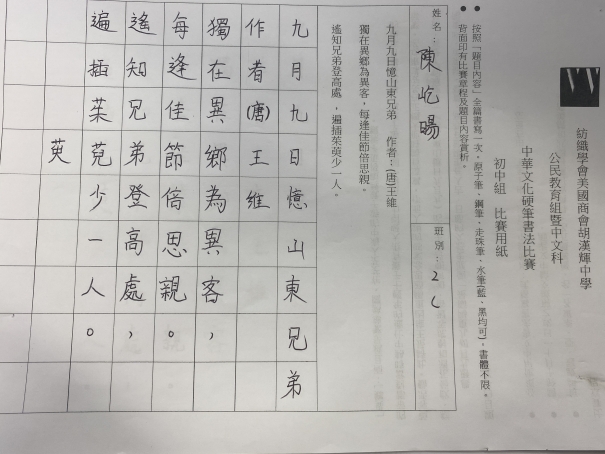 紡織學會美國商會胡漢輝中學
公民教育組暨中文科
中華文化硬筆書法比賽
初中組 比賽用紙
● 按照「題目內容」全篇書寫一次。原子筆、鋼筆、走珠筆、水筆(藍、黑均可)，書體不限。
● 背面印有比賽章程及題目內容賞析。
姓名：陳屹暘 班別：2C
九月九日憶山東兄弟 作者：(唐)王維
獨在異鄉為異客，每逢佳節倍思親。
遙知兄弟登高處，遍插茱萸少一人。
九月九日憶山東兄弟
作者(唐)王維
獨在異鄉為異客，
每逢佳節倍思親。
遙知兄弟登高處，
遍插茱萸少一人。
萸